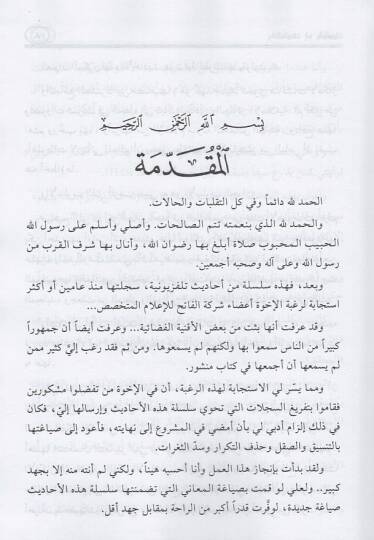 بسم الله الرحمن الرحيم
المُقدّمة
الحمد لله دائماً وفي كل التقلبات والحالات.
والحمد لله الذي بنعمته تتم الصالحات. وأصلي وأسلم على رسول الله
الحبيب المحبوب صلاة أبلغ بها رضوان الله، وأنال بها شرف القرب من
رسول الله وعلى آله وصحبه أجمعين.
وبعد، فهذه سلسلة من أحاديث تلفزيونية، سجلتها منذ عامين أو أكثر
استجابة لرغبة الإخوة أعضاء شركة الفاتح للإعلام المتخصص...
وقد عرفت أنها بثت من بعض الأقنية الفضائية... وعرفت أيضاً أن جمهوراً
كبيراً من الناس سمعوا بها ولكنهم لم يسمعوها. ومن ثم فقد رغب إليّ كثير ممن
لم يسمعها أن أجمعها في كتاب منشور.
ومما يسّر لي الاستجابة لهذه الرغبة، أن في الإخوة من تفضلوا مشكورين
فقاموا بتفريغ السجلات التي تحوي سلسلة هذه الأحاديث وإرسالها إليّ، فكان
في ذلك إلزام أدبي لي بأن أمضي في المشروع إلى نهايته، فأعود إلى صياغتها
بالتنسيق والصقل وحذف التكرار وسدّ الثغرات.
ولقد بدأت بإنجاز هذا العمل وأنا أحسبه هيناً، ولكني لم أنته منه إلا بجهد
كبير.. ولعلي لو قمت بصياغة المعاني التي تضمنتها سلسلة هذه الأحاديث
صياغة جديدة، لوفّرت قدراً أكبر من الراحة بمقابل جهد أقل.